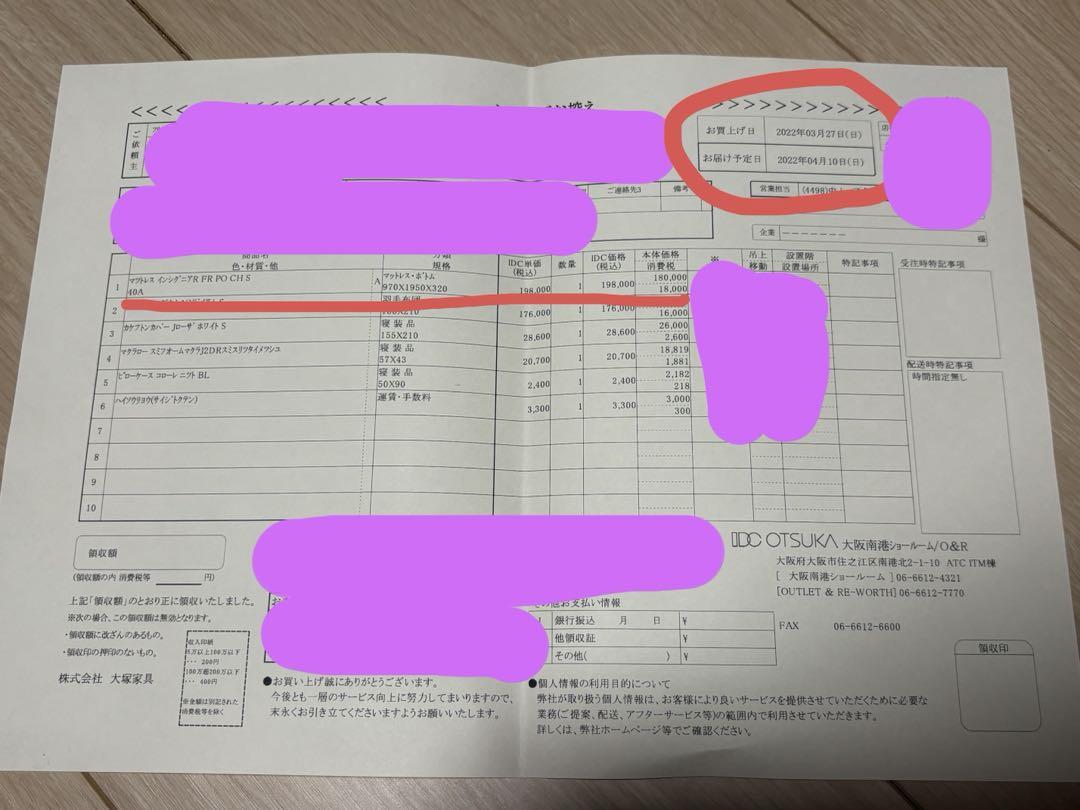 <<<<<<<<<<<<<
い控え
>>>>>>>>>>>
ご依頼主
お買上げ日 2022年03月27日(日)
お届け予定日 2022年04月10日(日)
ご連絡先3 備考
営業担当 (4498)
企業 －－－－－－－ 様
商品名 分類 IDC単価 数量 IDC価格 本体価格 ※ 吊上 設置階 特記事項
色・材質・他 規格 (税込) (税込) 消費税 移動 設置場所
受注時特記事項
1 マツトレス インシグニアR FR PO CH S A マットレス・ボトム 180,000
40A 970X1950X320 198,000 1 198,000 18,000
2 羽毛布団
176,000 1 176,000 16,000
3 カケフトンカバー Jローザ ホワイト S 寝装品 26,000
155X210 28,600 1 28,600 2,600
4 マクラロー スミフオームマクラJ2DRスミスリツタイメツシュ 寝装品 18,819
57X43 20,700 1 20,700 1,881
5 ピローケース コローレ ニット BL 寝装品 2,182
50X90 2,400 1 2,400 218
6 ハイソウリョウ(サイシ゛トクテン) 運賃・手数料 3,000
3,300 1 3,300 300
7
8
9
10
配送時特記事項
時間指定無し
領収額
(領収額の内 消費税等 円)
上記「領収額」のとおり正に領収いたしました。
※次の場合、この領収額は無効となります。
・領収額に改ざんのあるもの。
・領収印の押印のないもの。
株式会社 大塚家具
収入印紙
5万以上100万以下
･･･ 200円
100万超200万以下
･･･ 400円
※金額は別記された
消費税等を除く
その他お支払い情報
銀行振込 月 日 ¥
他領収証 ¥
その他( ) ¥
●お買い上げ誠にありがとうございます。
今後とも一層のサービス向上に努力してまいりますので、
末永くお引き立てくださいますようお願いいたします。
●個人情報の利用目的について
弊社が取り扱う個人情報は、お客様により良いサービスを提供させていただくために必要な
業務(ご提案、配送、アフターサービス等)の範囲内で利用させていただきます。
詳しくは、弊社ホームページ等でご確認ください。
IDC OTSUKA 大阪南港ショールーム/O&R
大阪府大阪市住之江区南港北2-1-10 ATC ITM棟
[ 大阪南港ショールーム ] 06-6612-4321
[OUTLET & RE-WORTH] 06-6612-7770
FAX 06-6612-6600
領収印